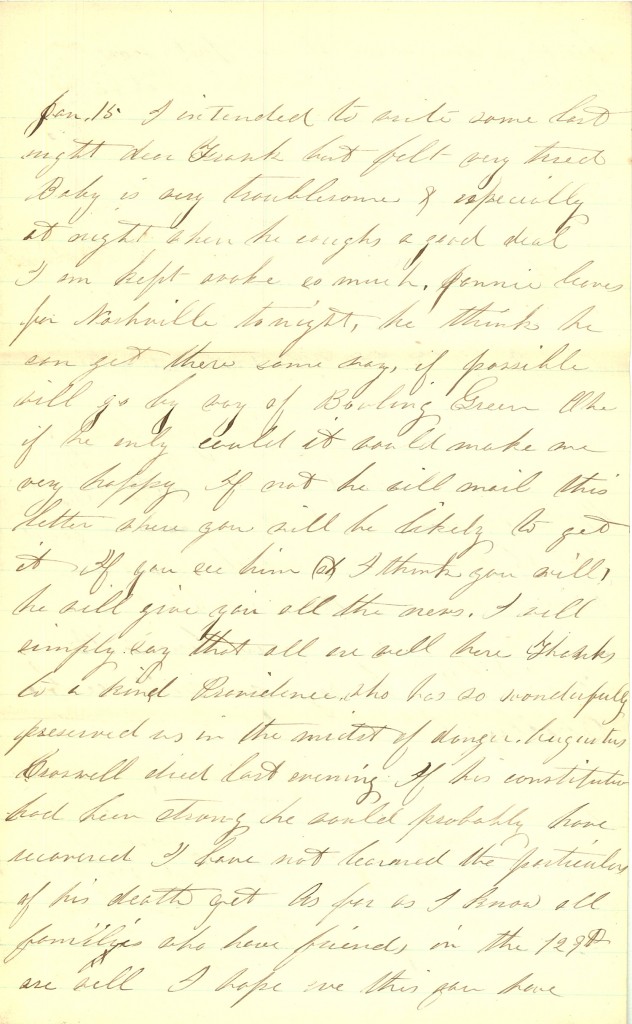 Jan. 15 I intended to write some last
night dear Frank but felt very tired
Baby is very troublesome & especially
at night when he coughs a good deal
I am kept awake so much. Jonnie leaves
for Nashville tonight, he thinks he
can get there some way, if possible
will go by way of Bowling Green
if he only could it would make me
very happy If not he will mail this
letter where you will be likely to get
it If you see him & I think you will,
he will give you all the news. I will
simply say that all are well here Thanks
to a kind Providence who has so wonderfully
preserved us in the midst of danger. Augustus
died last evening If his constitution
had been strong he would probably have
recovered I have not learned the particulars
of his death yet As far as I know all
families who have friends in the 129th
are well I hope ere this you have